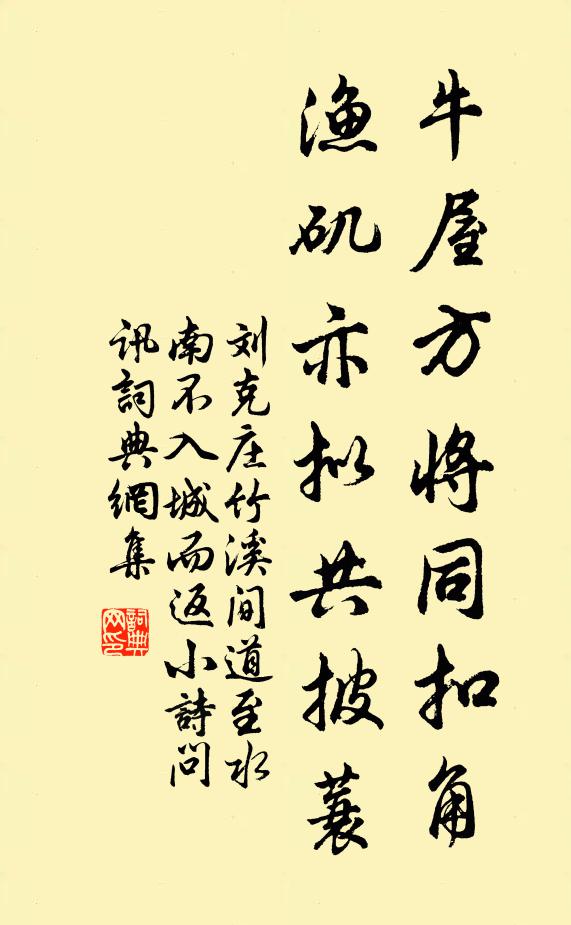 牛屋方将同扣角
渔矶亦拟共披蓑
刘克庄竹溪间道至水
南不入城而返小詩問
讯詞典網集
詞典
网印